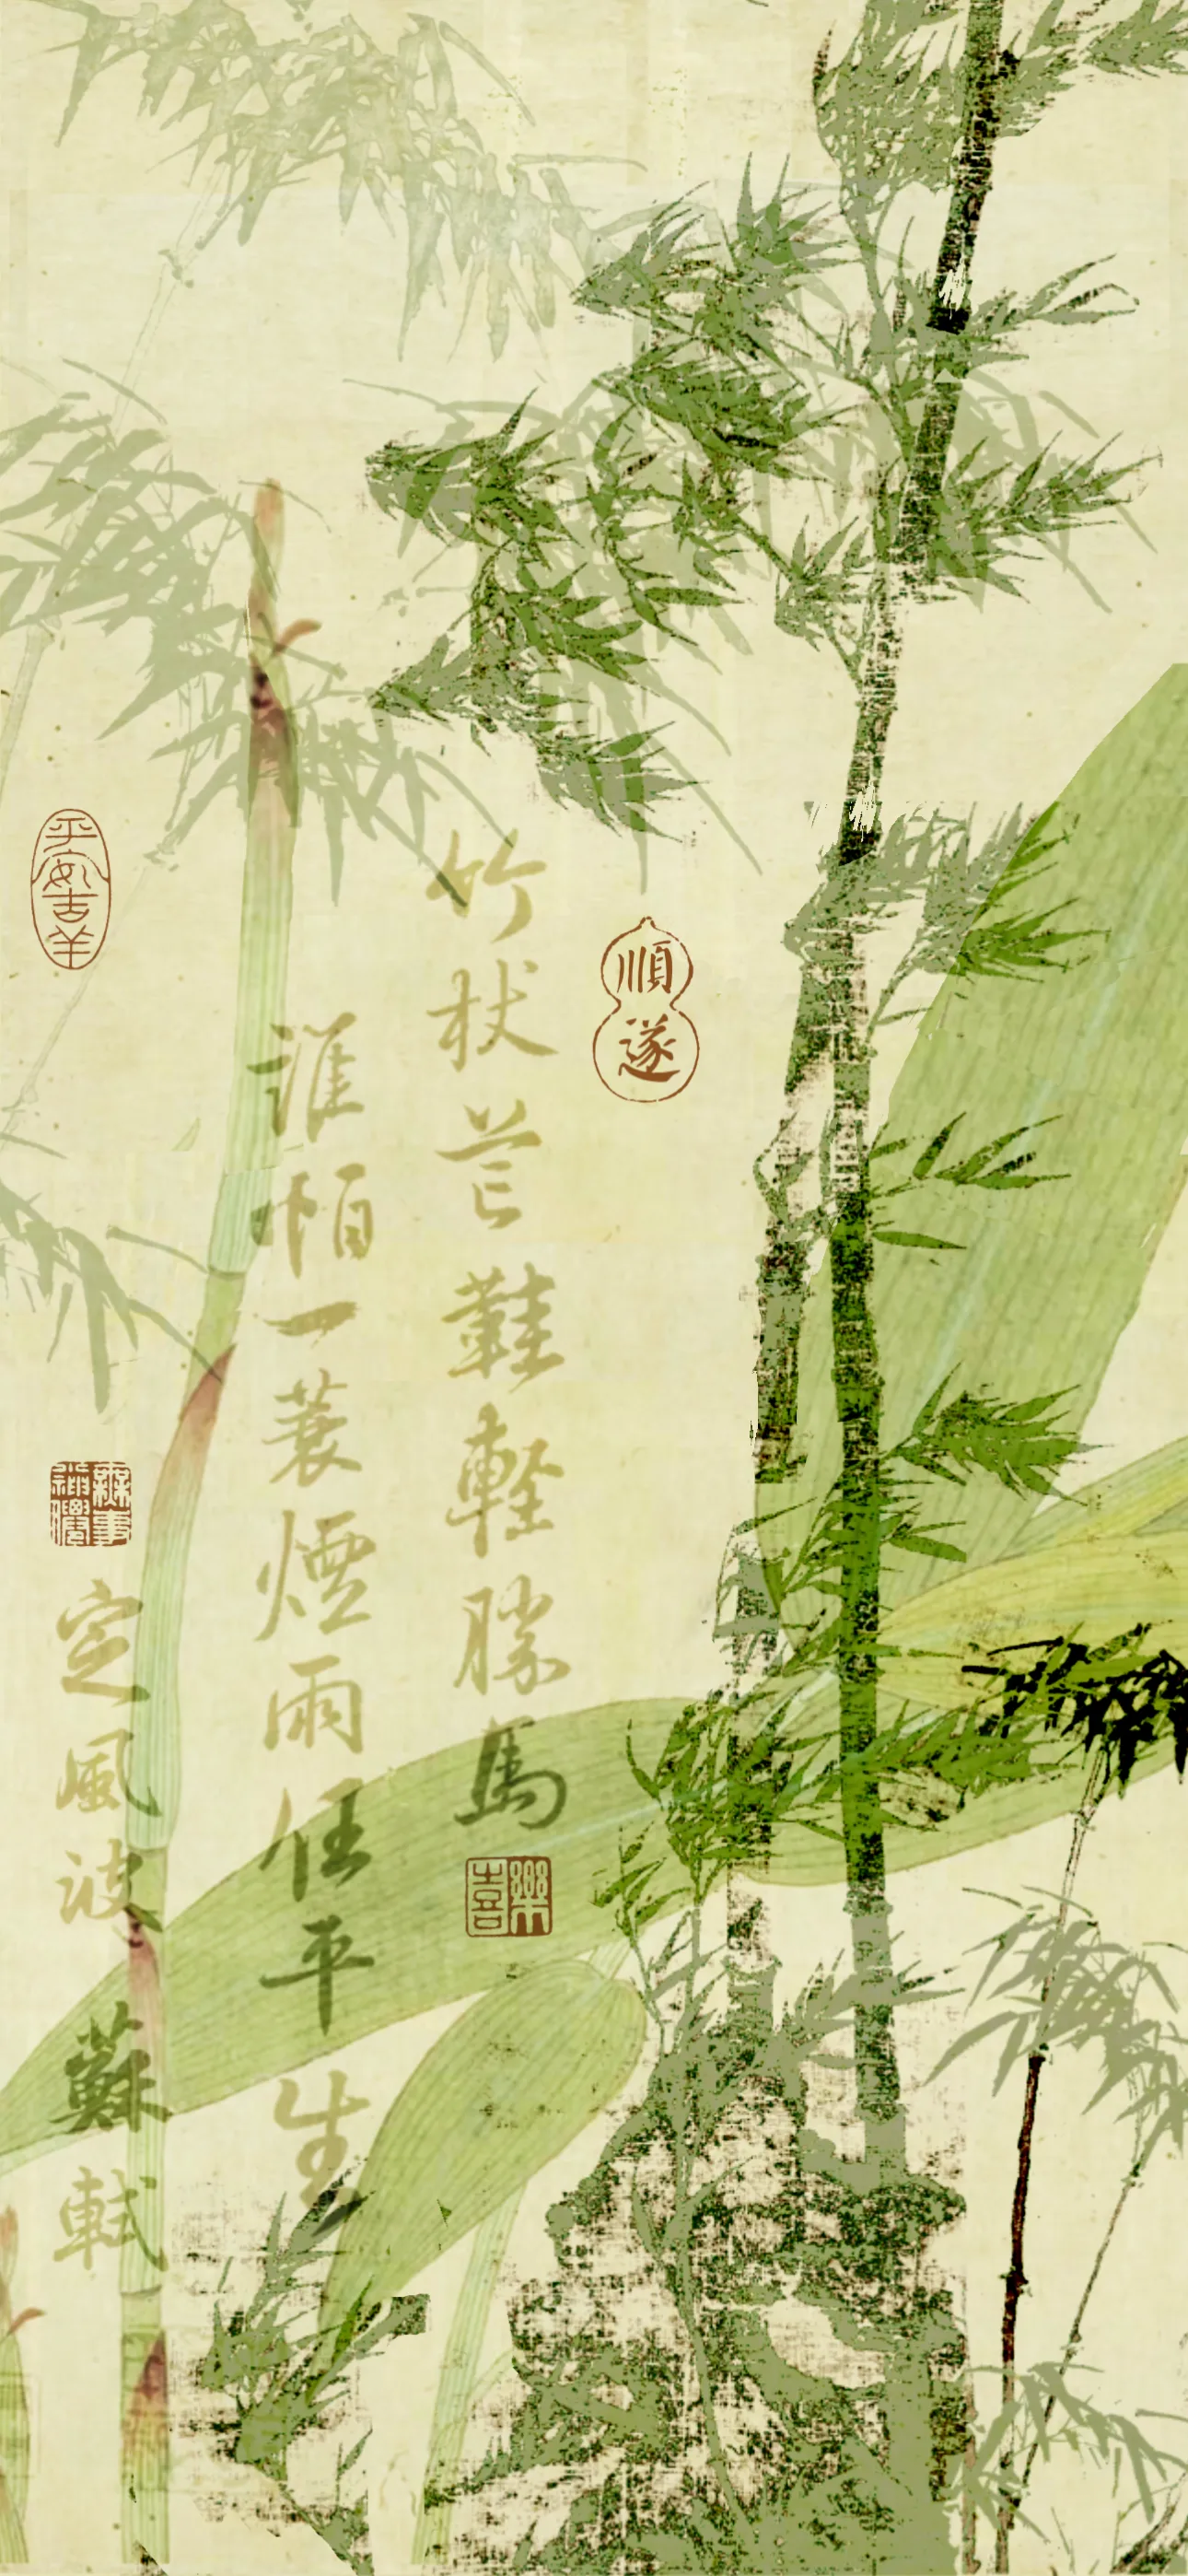 順遂
竹杖芒鞋輕勝馬
喜樂
誰怕一蓑煙雨任平生
平安吉羊
無事神僊
定風波 蘇軾